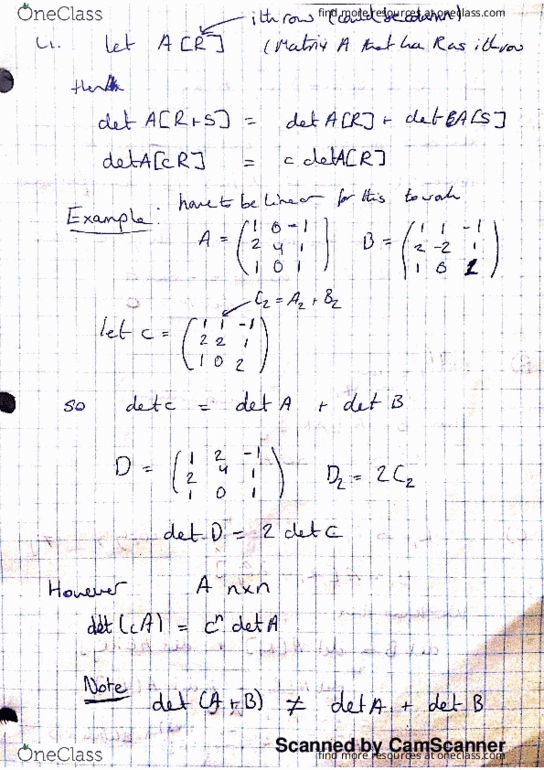 OneClass
find more resources at oneclass.com
ith row
L1. let A[R] (Matrix A that has R as ith row
then
det A[R+S] = det A[R] + det A[S]
det A[cR] = c det A[R]
Example: have to be linear for this to work
A = (1 0 -1
2 4 1
1 0 1)
B = (1 1 -1
2 -2 1
1 0 1)
C2 = A2 + B2
let C = (1 1 -1
2 2 1
1 0 2)
so det C = det A + det B
D = (1 2 -1
2 4 1
1 0 1)
D2 = 2C2
det D = 2 det C
However A n×n
det (cA) = cⁿ det A
Note det (A+B) ≠ det A + det B
Scanned by CamScanner
OneClass
find more resources at oneclass.com